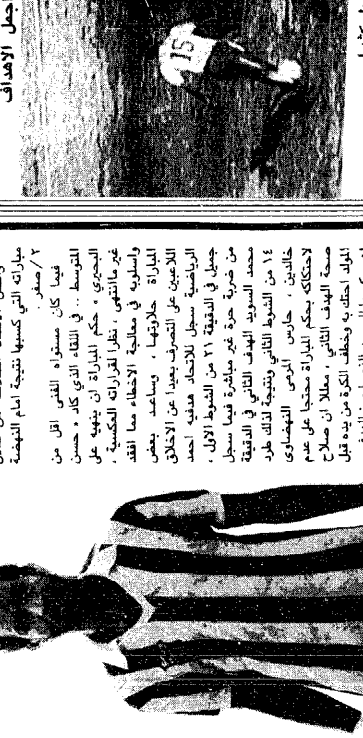 اجمل الاهداف
15
مباراته التي كسبها نتيجة امام النهضة
٢/صفر .
فيما كان مستواه الفني اقل من
المتوسط .. في اللقاء الذي كاد « حسن
البحيري » حكم المباراة ان ينهيه على
غير ماانتهى ، نظرا لقراراته العكسية ،
واسلوبه في معالجة الاخطاء مما افقد
المباراة حلاوتها ، وساعد بعض
اللاعبين على التصرف بعيدا عن الاخلاق
الرياضية سجل للاتحاد هدفيه احمد
جميل في الدقيقة ٢١ من الشوط الاول ،
من ضربة حرة غير مباشرة فيما سجل
محمد السويد الهدف الثاني في الدقيقة
١٤ من الشوط الثاني ونتيجة لذلك طرد
خالدين ، حارس المرمى النهضاوي
لاحتكاكه بحكم المباراة محتجا على عدم
صحة الهدف الثاني ، معللا ان صلاح
المولد احتك به وخطف الكرة من يده قبل